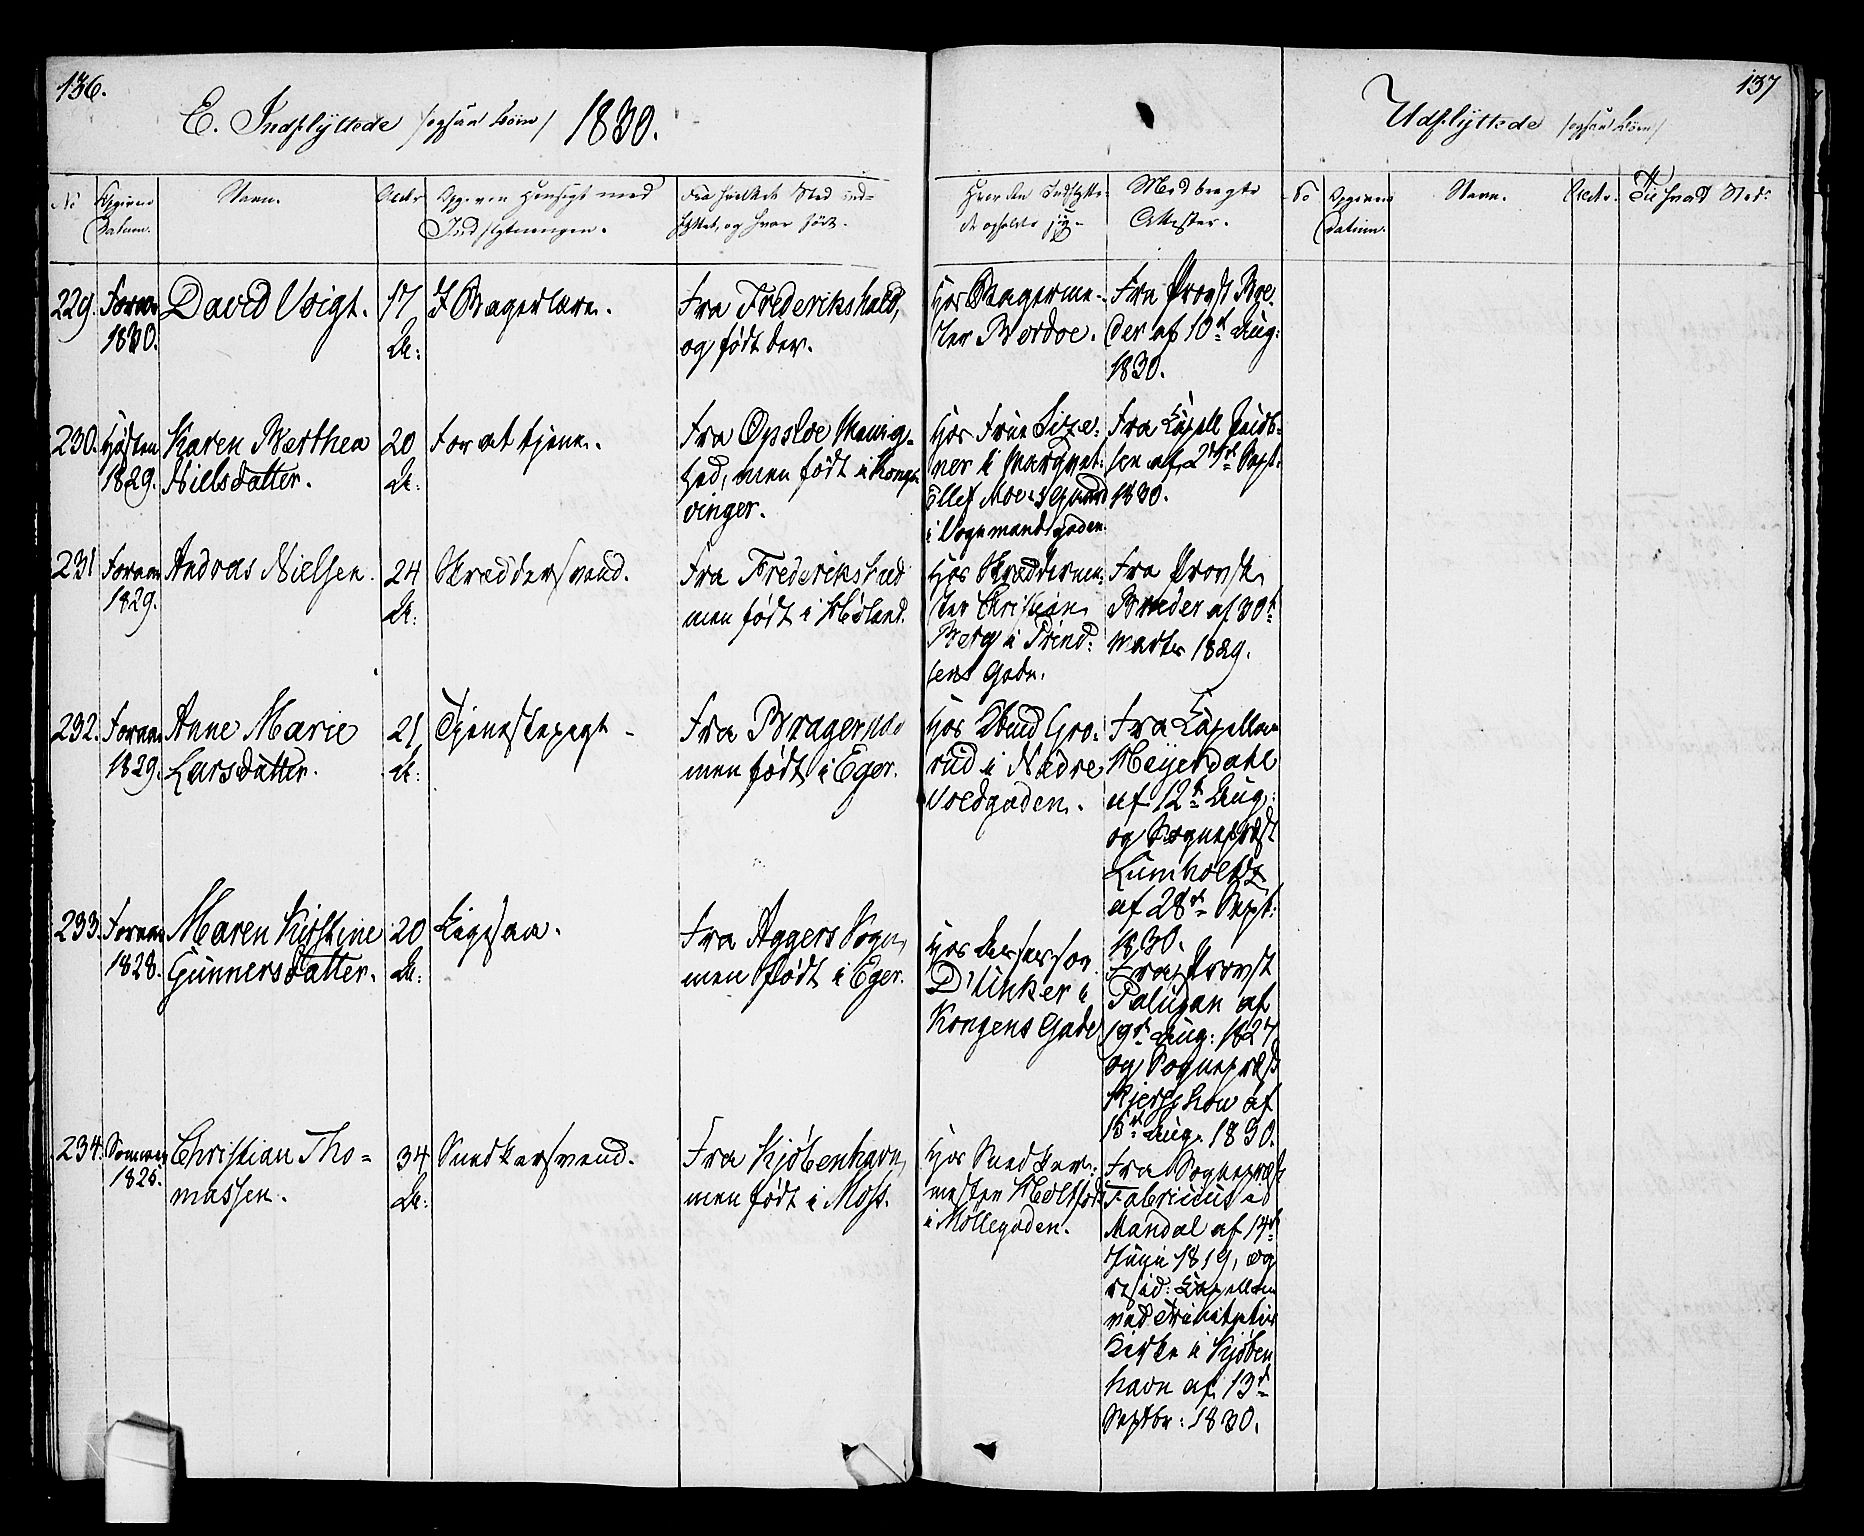 136.
E. Indflyttede /ogsaa Börn/ 1830.
No
Opgiven Datum.
Navn.
Alder
Opgiven Hensigt med Indflytningen.
Fra hvilket Sted indflyttet, og hvor født.
Hvor den Indflyttede opholder sig.
Medbragte Attester.
229.
Foraar
1830.
David Voigt.
17
A:
I Bagerlære.
Fra Frederikshald,
og født der.
Hos Bagerme-
ster Bordoe.
Fra Provst
der af 10de Aug:
1830.
230.
Høsten
1829.
Karen Berthea
Nielsdatter.
20
A:
For at tjene.
Fra Opsloe Menig-
hed, men født i Kongs-
vinger.
Hos Frue
ner i
Ellef Moes Gaard
i Vognmandsgaden.
Fra Capell
sen af 27de Sept:
1830.
231
Foraar
1829.
Andreas Nielsen.
24
A:
Skreddersvend.
Fra Frederikstad
men født i
Hos Skrædderme-
ster Christian
Berg i Prind-
sens Gade.
Fra Provst
af 30te
Marts 1829.
232.
Foraar
1829.
Anne Marie
Larsdatter.
21
A:
Tjenestepige
Fra Bragernes
men født i Eger.
Hos Gro-
rud i Nedre
Voldgaden.
Fra Capellan
Meyerdahl
af 12te Aug:
og Sognepræst
Lumholtz
af 28de Sept:
1830.
233.
Foraar
1828.
Maren Kirstine
Gunnersdatter.
20
A:
Ligesaa.
Fra Aggers Sogn,
men født i Eger.
Hos Assessor
Dunker i
Kongens Gade
Fra Provst
Paludan af
19de Aug: 1827
og Sognepræst
Kjerschow af
15de Aug. 1830.
234.
Sommer
1825.
Christian Tho-
massen.
34
A:
Snedkersvend.
Fra Kjøbenhavn,
men født i Moss.
Hos Snedker-
mester
i Möllegaden.
Fra Sognepræst
Fabricius i
Mandal af 14de
Juni 1819, og
resid: Capellan
ved Trinitatis
Kirke i Kjøben
havn af 13de
Septbr: 1830.
137
Udflyttede /ogsaa Börn/
No
Opgiven Datum.
Navn.
Alder.
Til hvad Sted.